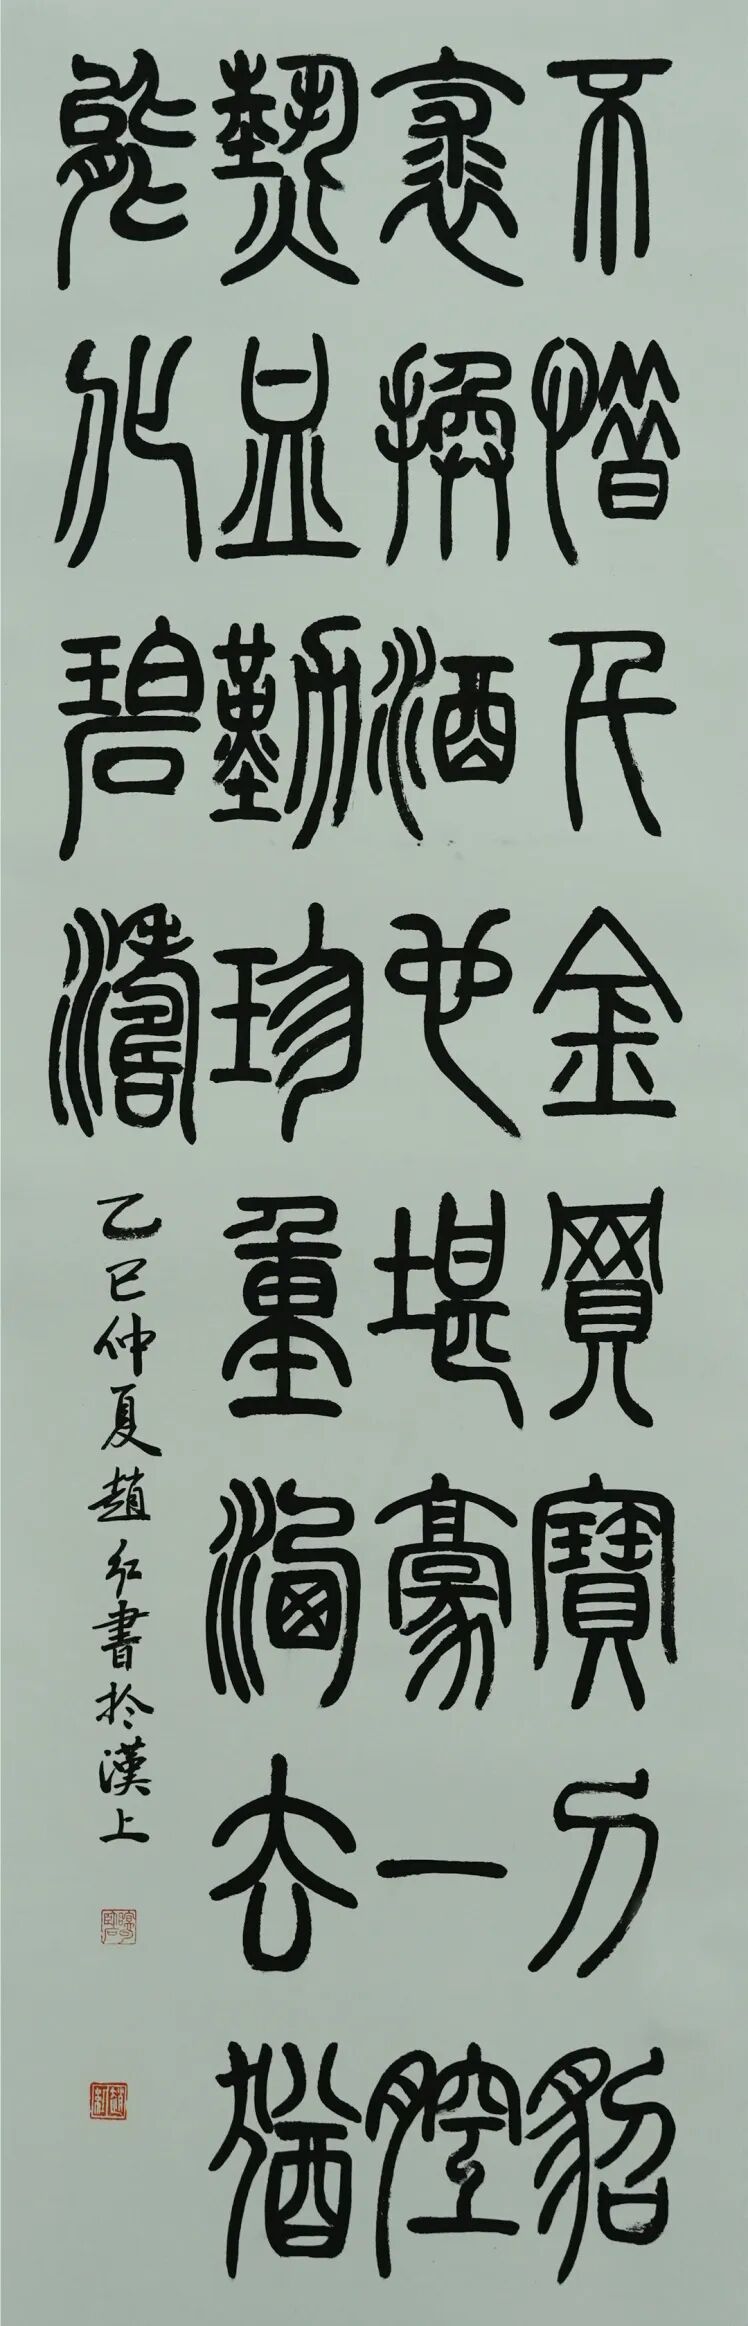 不惜千金買寶刀貂
裘換酒也堪豪一腔
熱血勤珍重灑去猶
能化碧濤
乙巳仲夏趙紅書於漢上